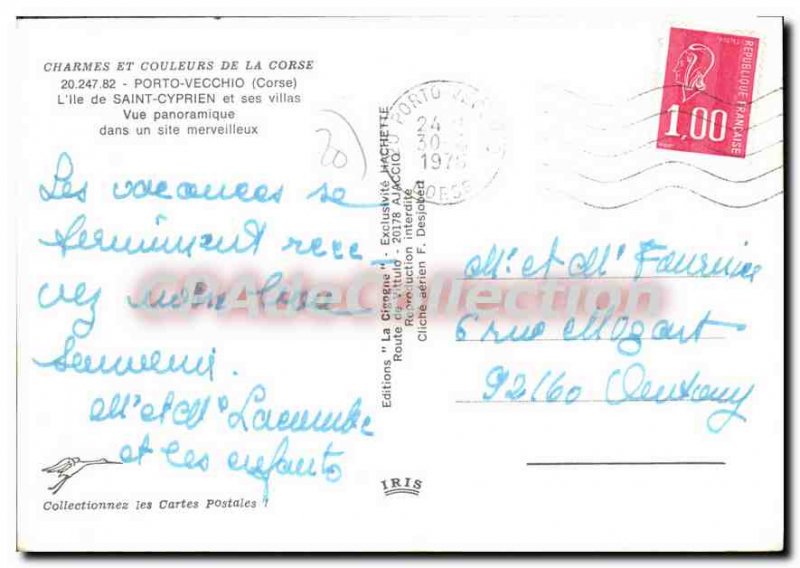 CHARMES ET COULEURS DE LA CORSE
20.247.82 - PORTO-VECCHIO (Corse)
L'Ile de SAINT-CYPRIEN et ses villas
Vue panoramique
dans un site merveilleux
20
Les vacances se
terminent rece
vez notre bon
Souvenir.
Mr et Mme Lacombe
et les enfants
Collectionnez les Cartes Postales !
Editions " La Cigogne " - Exclusivité HACHETTE
Route de Vittulo - 20178 AJACCIO
Reproduction interdite
Cliché aérien F. Desjobert
IRIS
PORTO VECCHIO
24
30
197
CORSE
REPUBLIQUE FRANÇAISE
POSTES
1,00
Mr et Me Fournier
6 rue Mozart
92160 Antony
CPAdeCollection